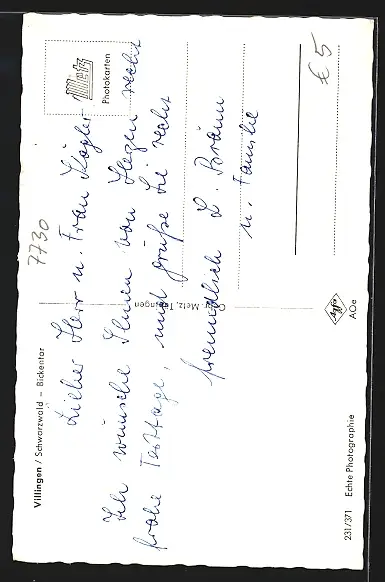 Villingen / Schwarzwald – Bickentor
7730
Lieber Herr u. Frau Kögler
Ich wünsche Ihnen von Herzen recht
frohe Festtage, und grüße Sie recht
freundlich L. Braun
u. Familie
Metz
Photokarten
Gebr. Metz, Tübingen
€ 5
Agfa
AOe
231/371 Echte Photographie